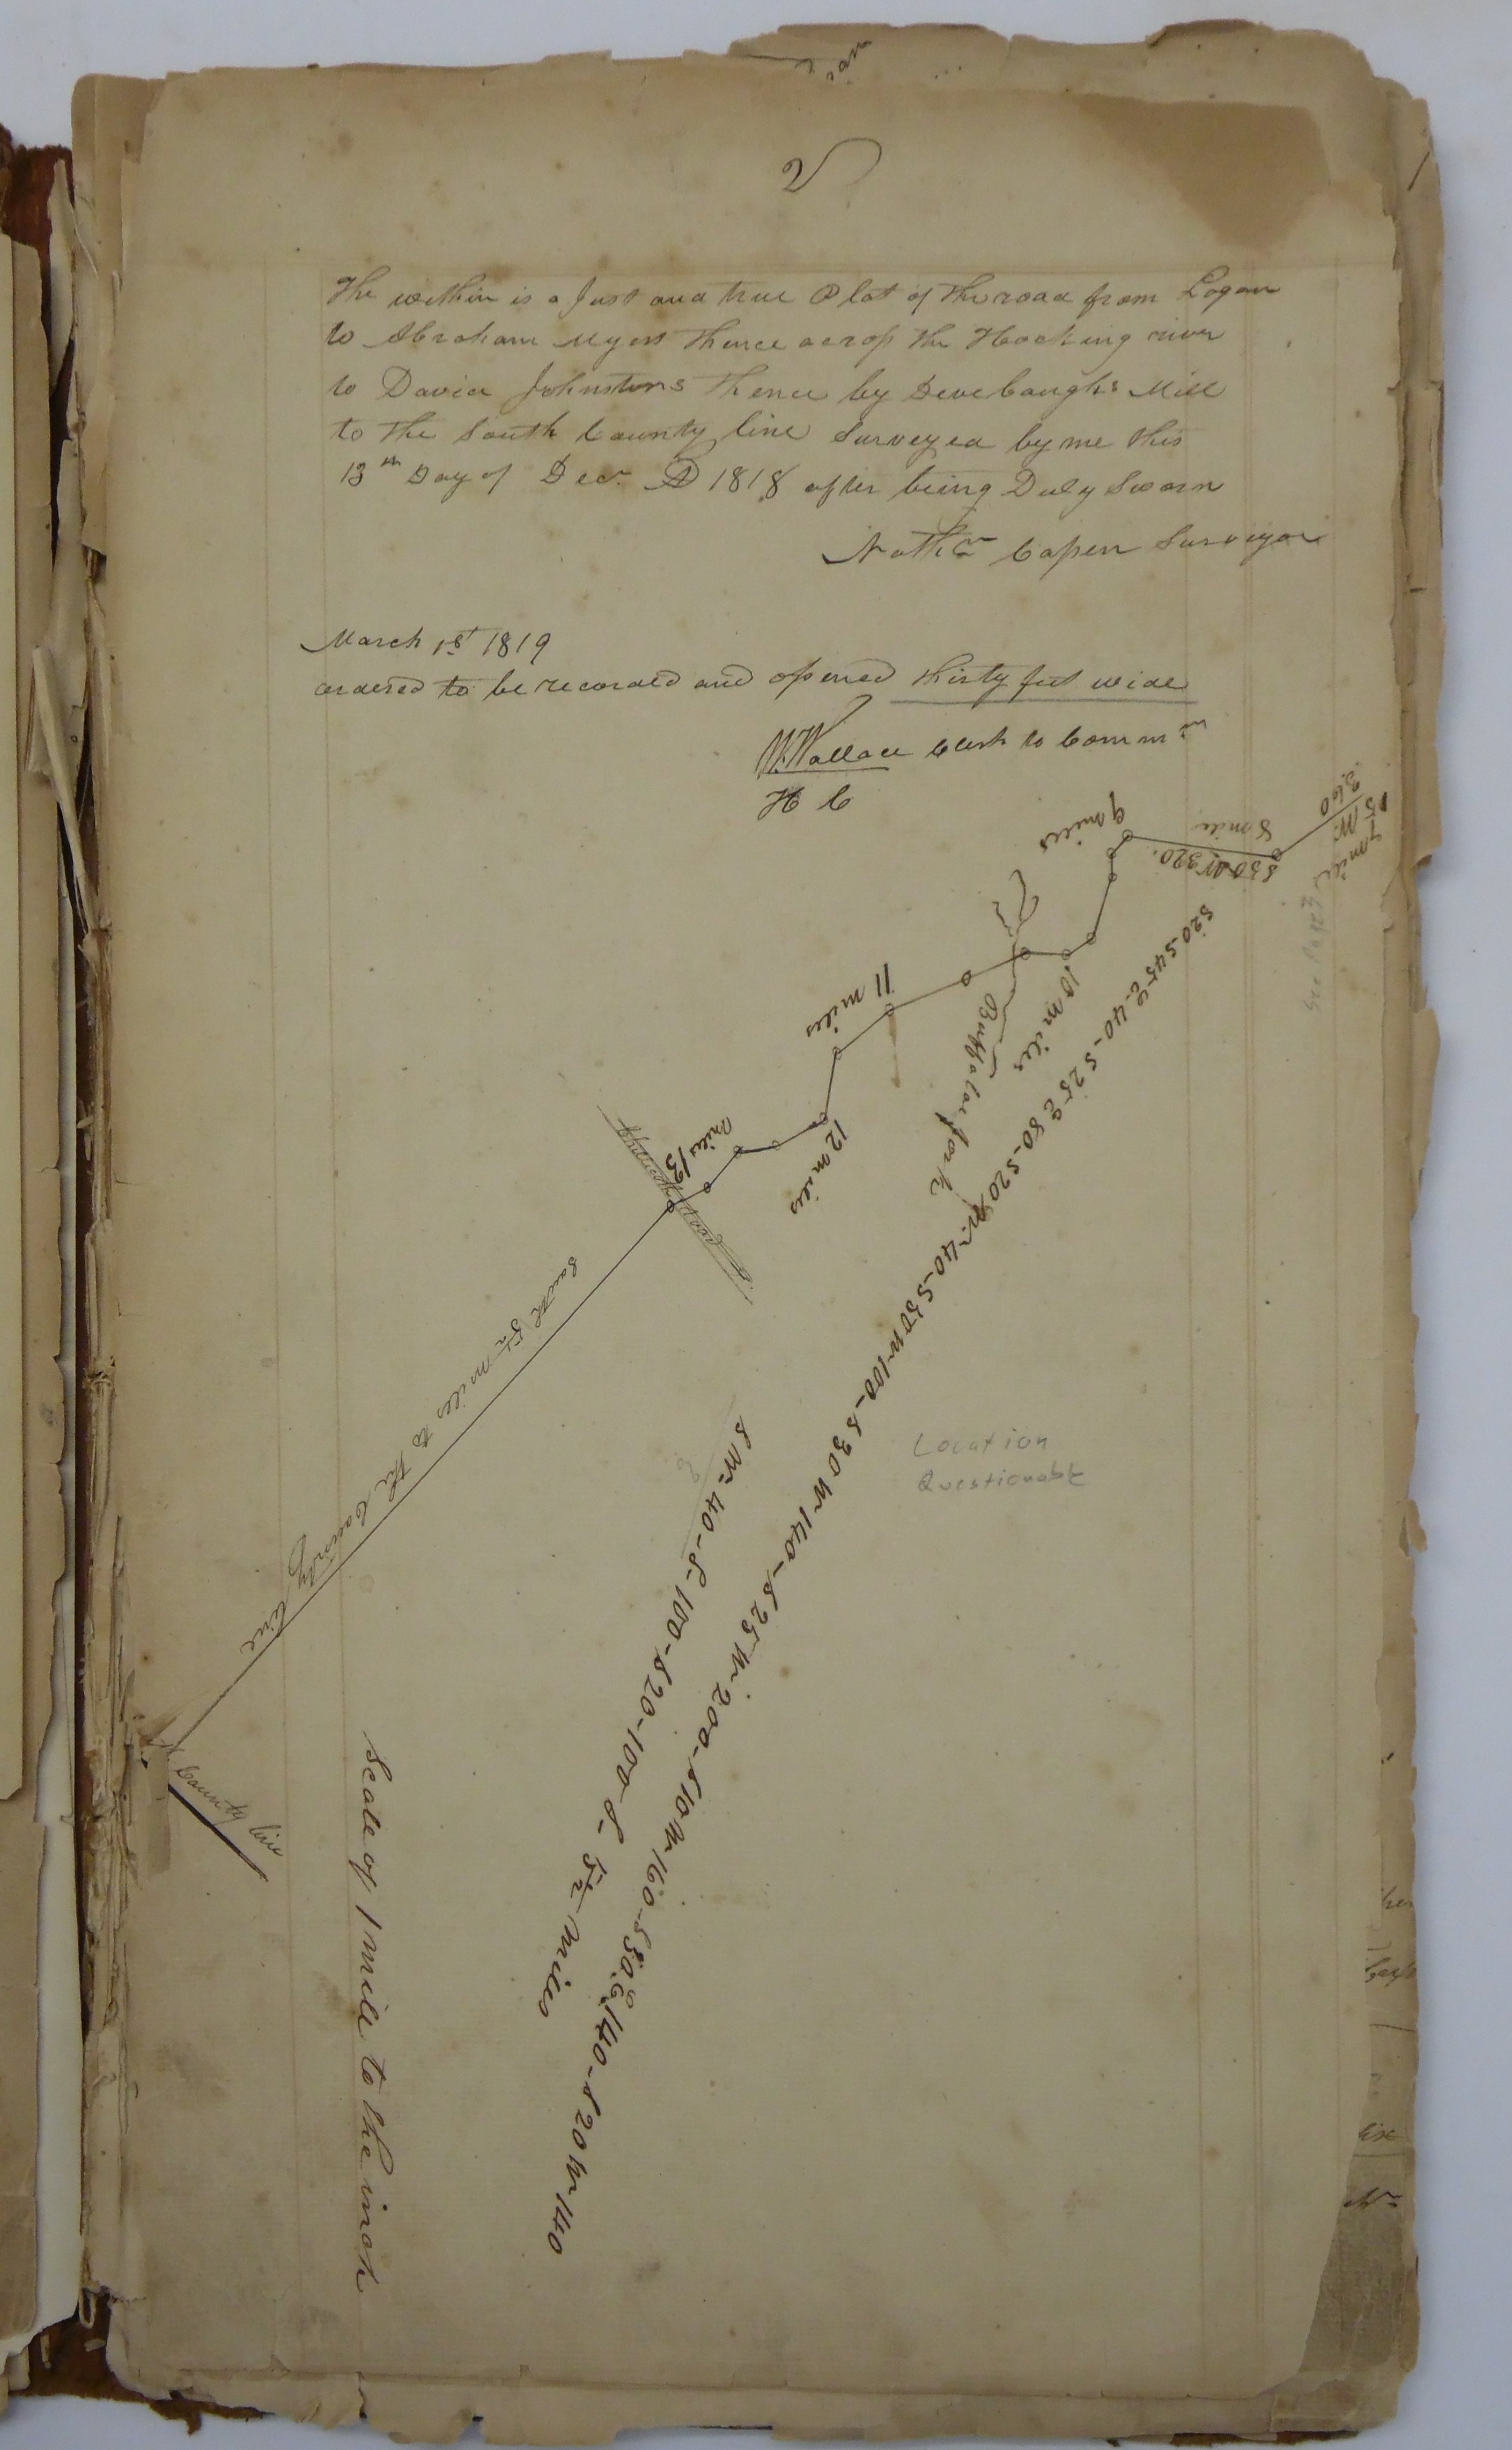 2
The within is a Just and true Plot of the road from Logan
to Abraham Myers thence across the Hocking river
to David Johnstons thence by Devebaughs Mill
to the South County line Surveyed by me this
13th Day of Decr. AD 1818 after being Duly Sworn
Capen Surveyor
March 1st 1819
ordered to be recorded and opened thirty feet wide
W. Wallace Clerk to Commrs
H C
360
7 mile
8 mile
S50W 320.
9 miles
See Page 3
10 miles
Buffaloe fork
11 miles
12 miles
miles 13
Chillicothe road
South 5½ miles to the County line
County line
S20-S45E-40-S25E80-S20W-40-S50W100-S30W140-S25W-200-S10W160-S50.E.140-S20W140
SW-40-S-100-S20-100-S-5½ miles
Location
Questionable
Scale of 1 mile to the inch